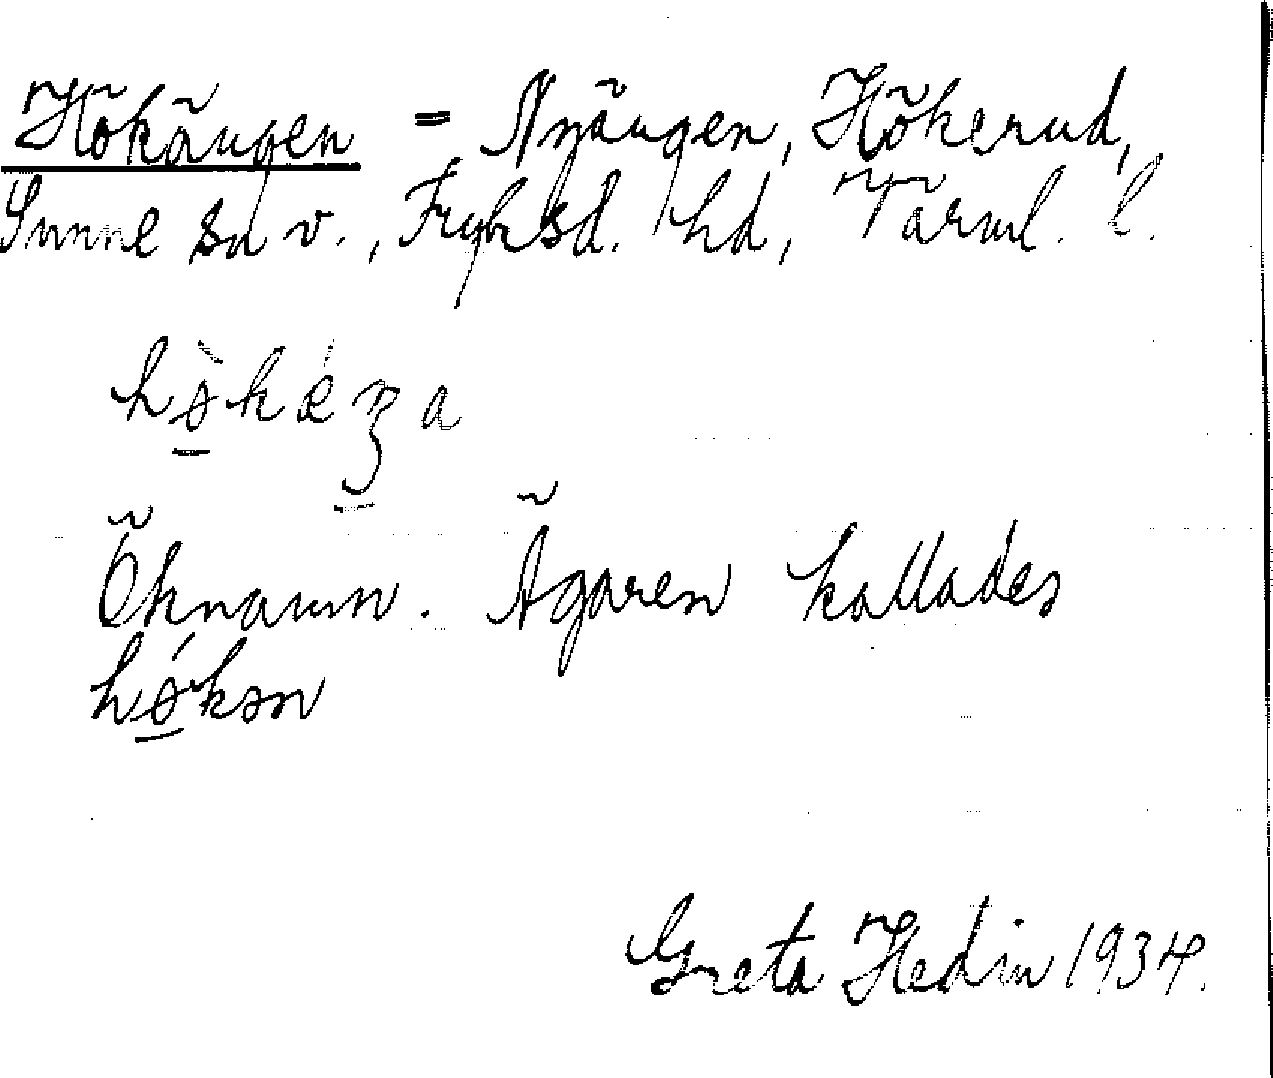 Hökängen = Nyängen, Hökerud,
Sunne sn v., Fryksd. hd, Värml. l.
Öknamn. Ägaren kallades
Greta Hedin 1934.